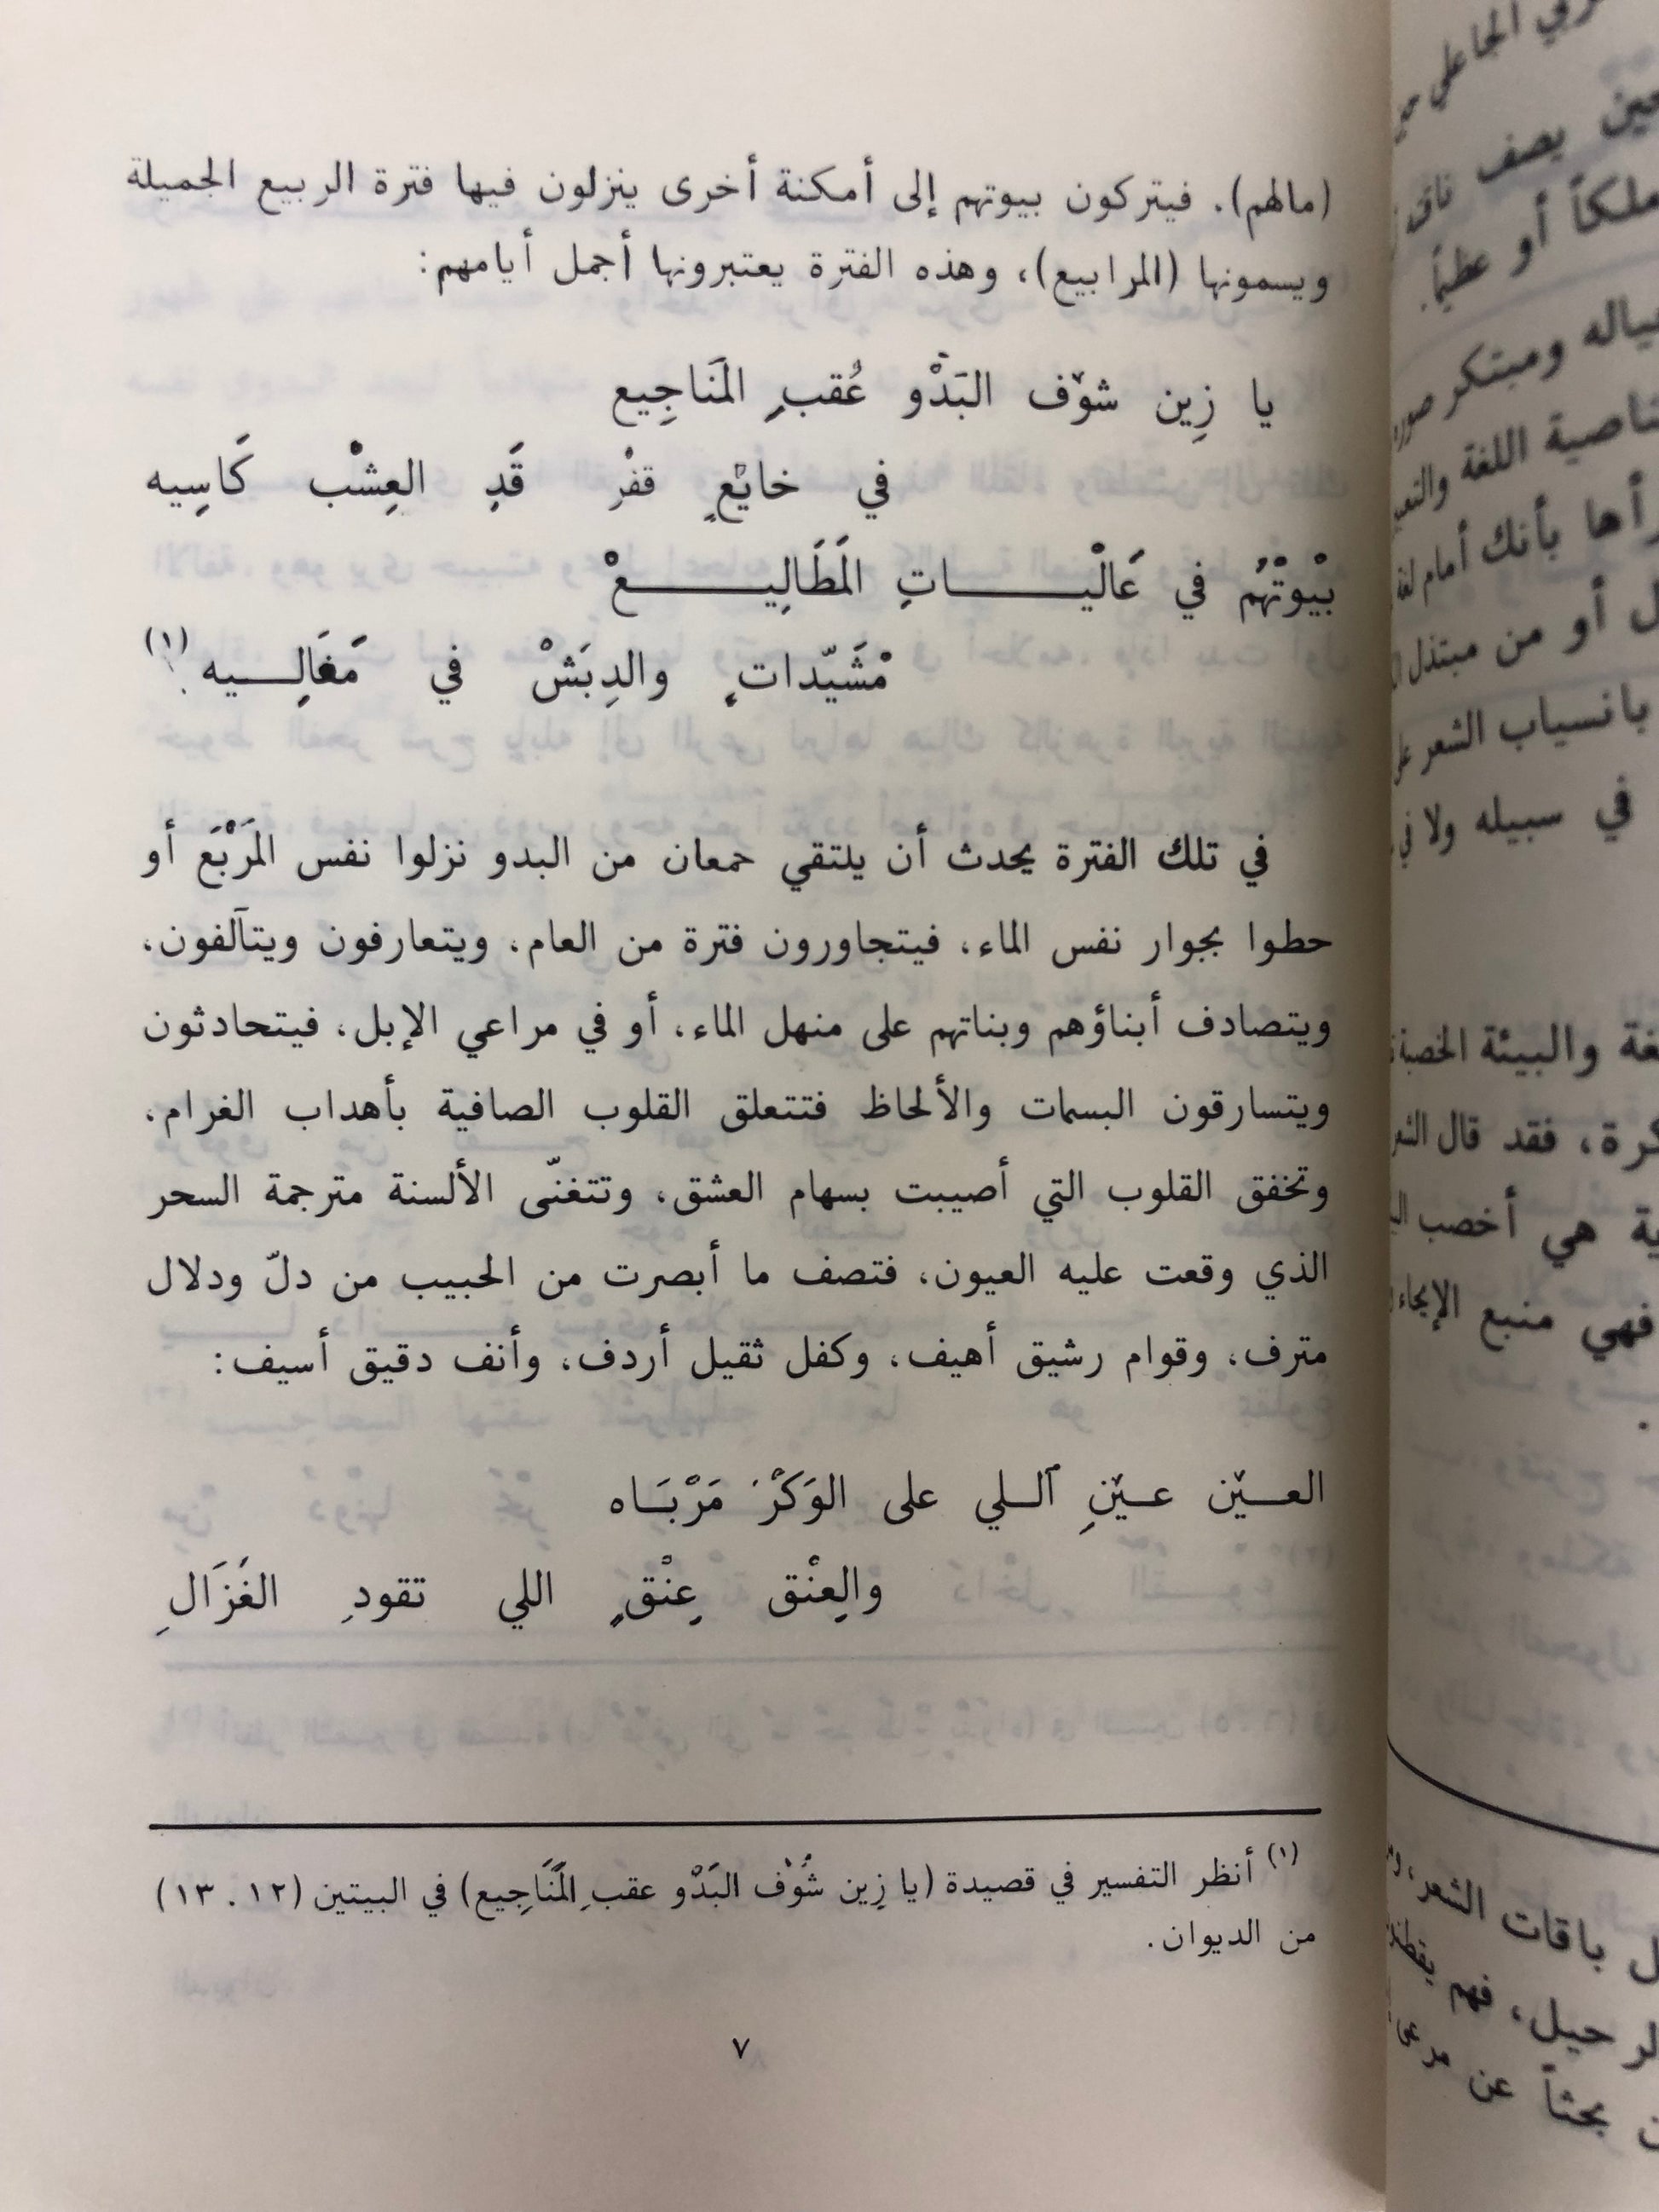 (مالهم). فيتركون بيوتهم إلى أمكنة أخرى ينزلون فيها فترة الربيع الجميلة
ويسمونها (المرابيع)، وهذه الفترة يعتبرونها أجمل أيامهم:
يا زِين شوْف البَدْو عُقبِ المَناجِيع
في خايْعٍ قفْر قَدِ العِشْب كَاسِيه
بيْوتْهُم في عَالْيـــاتِ المَطَالِيـــعْ
مْشَيّدات والدِبَشْ في مَغَالِـيه (١)
في تلك الفترة يحدث أن يلتقي جمعان من البدو نزلوا نفس المَرْبَع أو
حطوا بجوار نفس الماء، فيتجاورون فترة من العام، ويتعارفون ويتآلفون،
ويتصادف أبناؤهم وبناتهم على منهل الماء، أو في مراعي الإبل، فيتحادثون
ويتسارقون البسمات والألحاظ فتتعلق القلوب الصافية بأهداب الغرام،
وتخفق القلوب التي أصيبت بسهام العشق، وتتغنّى الألسنة مترجمة السحر
الذي وقعت عليه العيون، فتصف ما أبصرت من الحبيب من دلّ ودلال
مترف، وقوام رشيق أهيف، وكفل ثقيل أردف، وأنف دقيق أسيف:
العـيْن عـيْنِ آلـلي على الوَكْرَ مَرْبَـاه
والعِنْق عِنْقِ اللي تقودِ الغَزَالِ
(١) أنظر التفسير في قصيدة (يا زِين شُوْف البَدْو عقبِ المَنَاجِيع) في البيتين (١٢ . ١٣)
من الديوان.
٧
ملكاً أو عظيماً.
ومبتكر
اللغة
بأنك أمام
أو من مبتذل
بانسياب الشعر
في سبيله ولا
والبيئة
فقد قال
هي أخصب
فهي منبع
باقات الشعر،
فهم
بحثاً عن